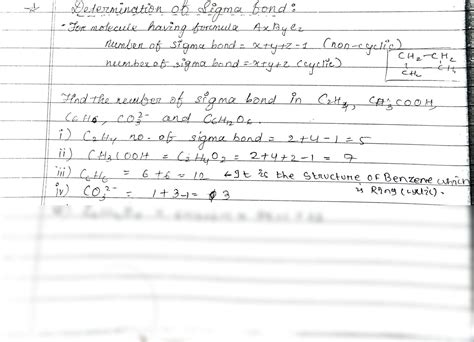 Determination of Sigma bond:
- For molecule having formula AxByCz
number of sigma bond = x+y+z-1 (non-cyclic)
number of sigma bond = x+y+z (cyclic)
CH2-CH2
CH2
Find the number of sigma bond in C2H4, CH3COOH,
C6H6, CO3^2- and C6H12O6.
i) C2H4 no. of sigma bond = 2+4-1=5
ii) CH3COOH = C2H4O2 = 2+4+2-1 = 7
iii) C6H6 = 6+6=12 It is the structure of Benzene which
is Ring (cyclic).
iv) CO3^2- = 1+3-1= 3